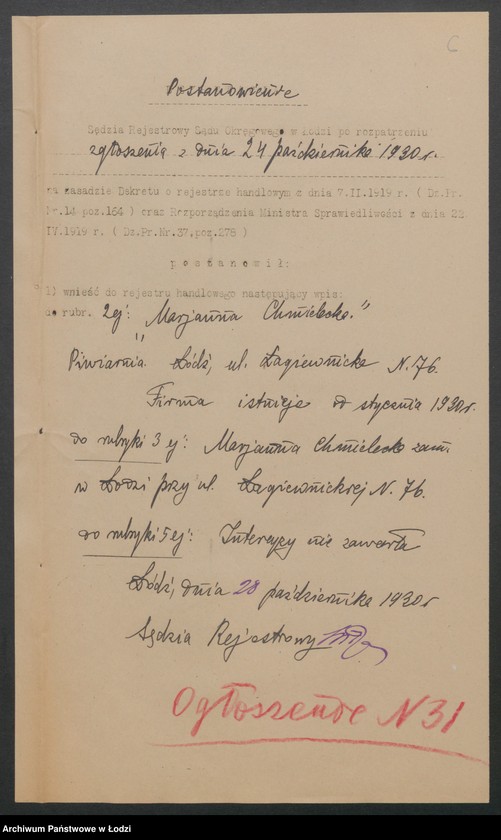 6
Postanowienie
Sędzia Rejestrowy Sądu Okręgowego w Łodzi po rozpatrzeniu
zgłoszenia z dnia 24 października 1930 r.
na zasadzie Dekretu o rejestrze handlowym z dnia 7.II.1919 r. ( Dz.Pr.
Nr.14 poz.164 ) oraz Rozporządzenia Ministra Sprawiedliwości z dnia 22
IV.1919 r. ( Dz.Pr.Nr.37,poz.278 )
p o s t a n o w i ł :
1) wnieść do rejestru handlowego następujący wpis:
do rubr. 2ej: "Marjanna Chmielecka."
Piwiarnia. Łódź, ul. Łagiewnicka N. 76.
Firma istnieje od stycznia 1930 r.
do rubryki 3 ej: Marjanna Chmielecka zam.
w Łodzi przy ul. Łagiewnickiej N. 76.
do rubryki 5 ej: Intercyzy nie zawarła
Łódź, dnia 28 października 1930 r
Sędzia Rejestrowy
Ogłoszenie N 31
Archiwum Państwowe w Łodzi